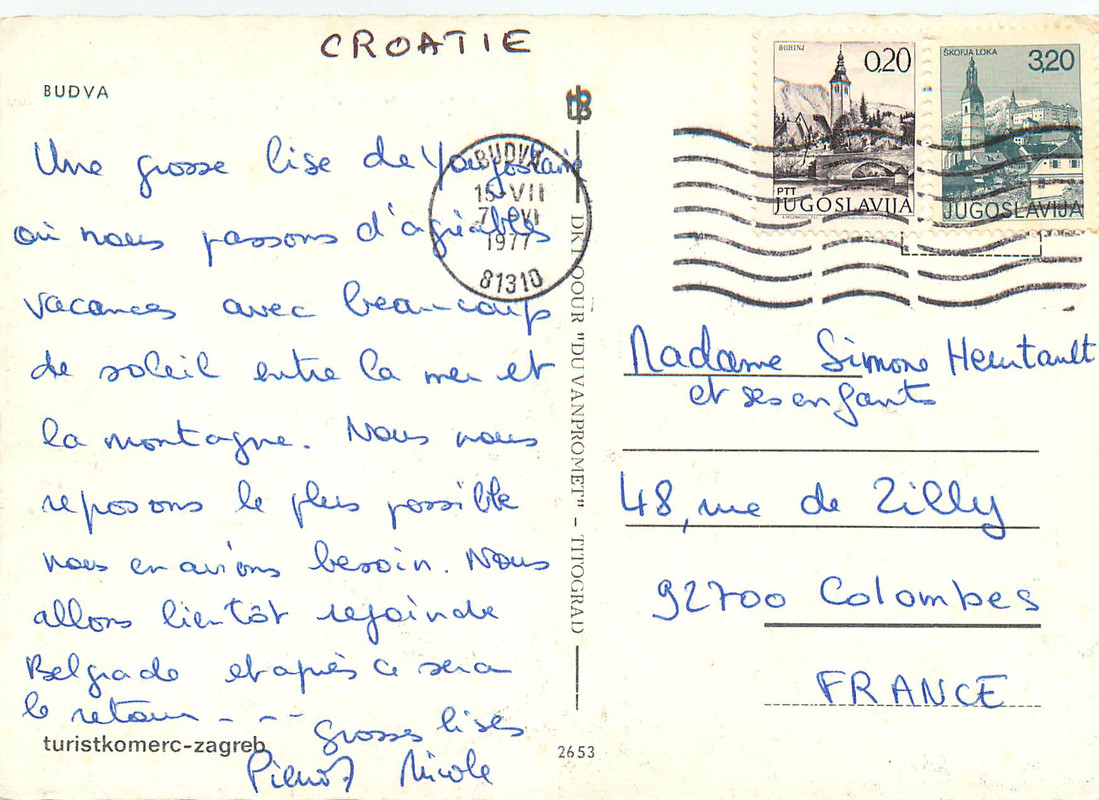 CROATIE
BUDVA
Une grosse bise de Yougoslavie
où nous passons d'agréables
vacances avec beaucoup
de soleil entre la mer et
la montagne. Nous nous
reposons le plus possible
nous en avions besoin. Nous
allons bientôt rejoindre
Belgrade et après ce sera
le retour - - -
grosses bises
Nicole
turistkomerc-zagreb
2653
DKTOOUR "DUVANPROMET" - TITOGRAD
BUDVA
15-VII
1977
81310
BOHINJ
0,20
PTT
JUGOSLAVIJA
ŠKOFJA LOKA
3,20
JUGOSLAVIJA
Madame Simone
et ses enfants
48, rue de Zilly
92700 Colombes
FRANCE